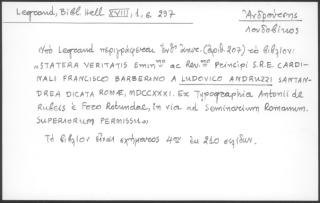 Legrand, Bibl. Hell. XVIII, 1, σ. 297
Ἀνδρούτσης
Λουδοβίκος
Ὑπὸ Legrand περιγράφεται (ἀριθ. 207) τὸ βιβλίον:
«STATERA VERITATIS Emin.mo ac Rev.mo Principi S.R.E. CARDI-
NALI FRANCISCO BARBERINO A LUDOVICO ANDRUZZI SANTAN-
DREA DICATA ROMÆ, MDCCXXXI. Ex Typographia Antonii de
Rubeis è Foro Rotundae, in via ad Seminarium Romanum.
SUPERIORUM PERMISSU»
Τὸ βιβλίον εἶναι σχήματος 4ον ἐκ 210 σελίδων.